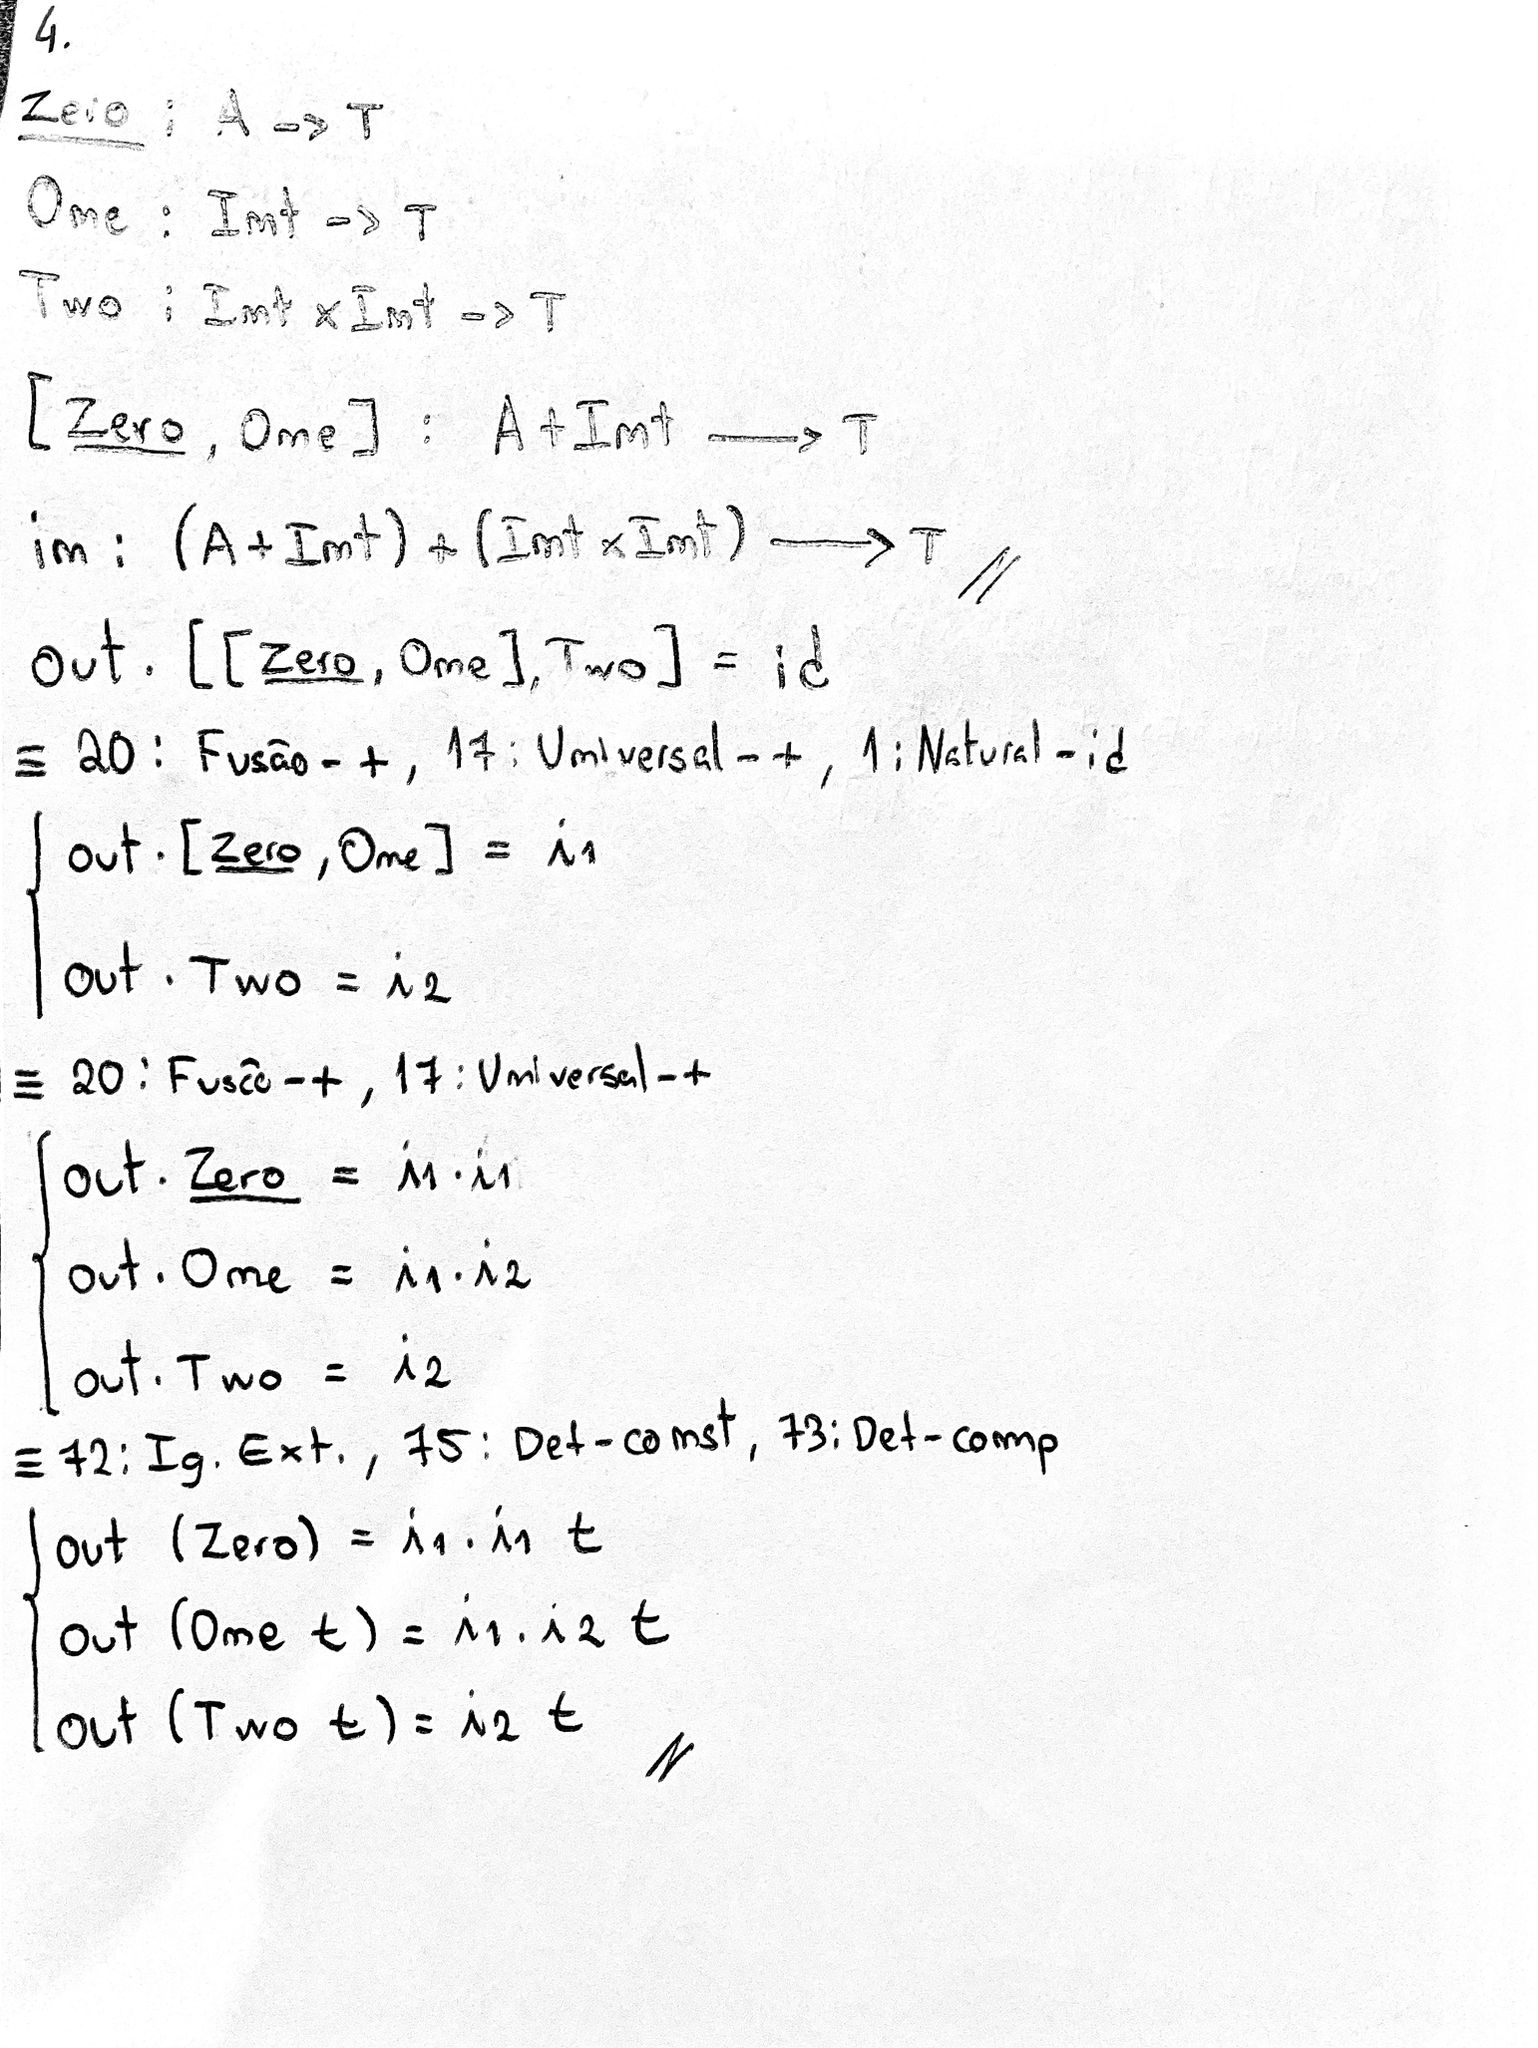 4.
Zero : A -> T
One : Int -> T
Two : Int x Int -> T
[Zero, One] : A + Int ⟶ T
in : (A + Int) + (Int x Int) ⟶ T //
out . [[Zero, One], Two] = id
≡ 20: Fusão-+, 17: Universal-+, 1: Natural-id
out . [Zero, One] = i1
out . Two = i2
≡ 20: Fusão-+, 17: Universal-+
out . Zero = i1 . i1
out . One = i1 . i2
out . Two = i2
≡ 72: Ig. Ext., 75: Def-const, 73: Def-comp
out (Zero) = i1 . i1 t
out (One t) = i1 . i2 t
out (Two t) = i2 t //